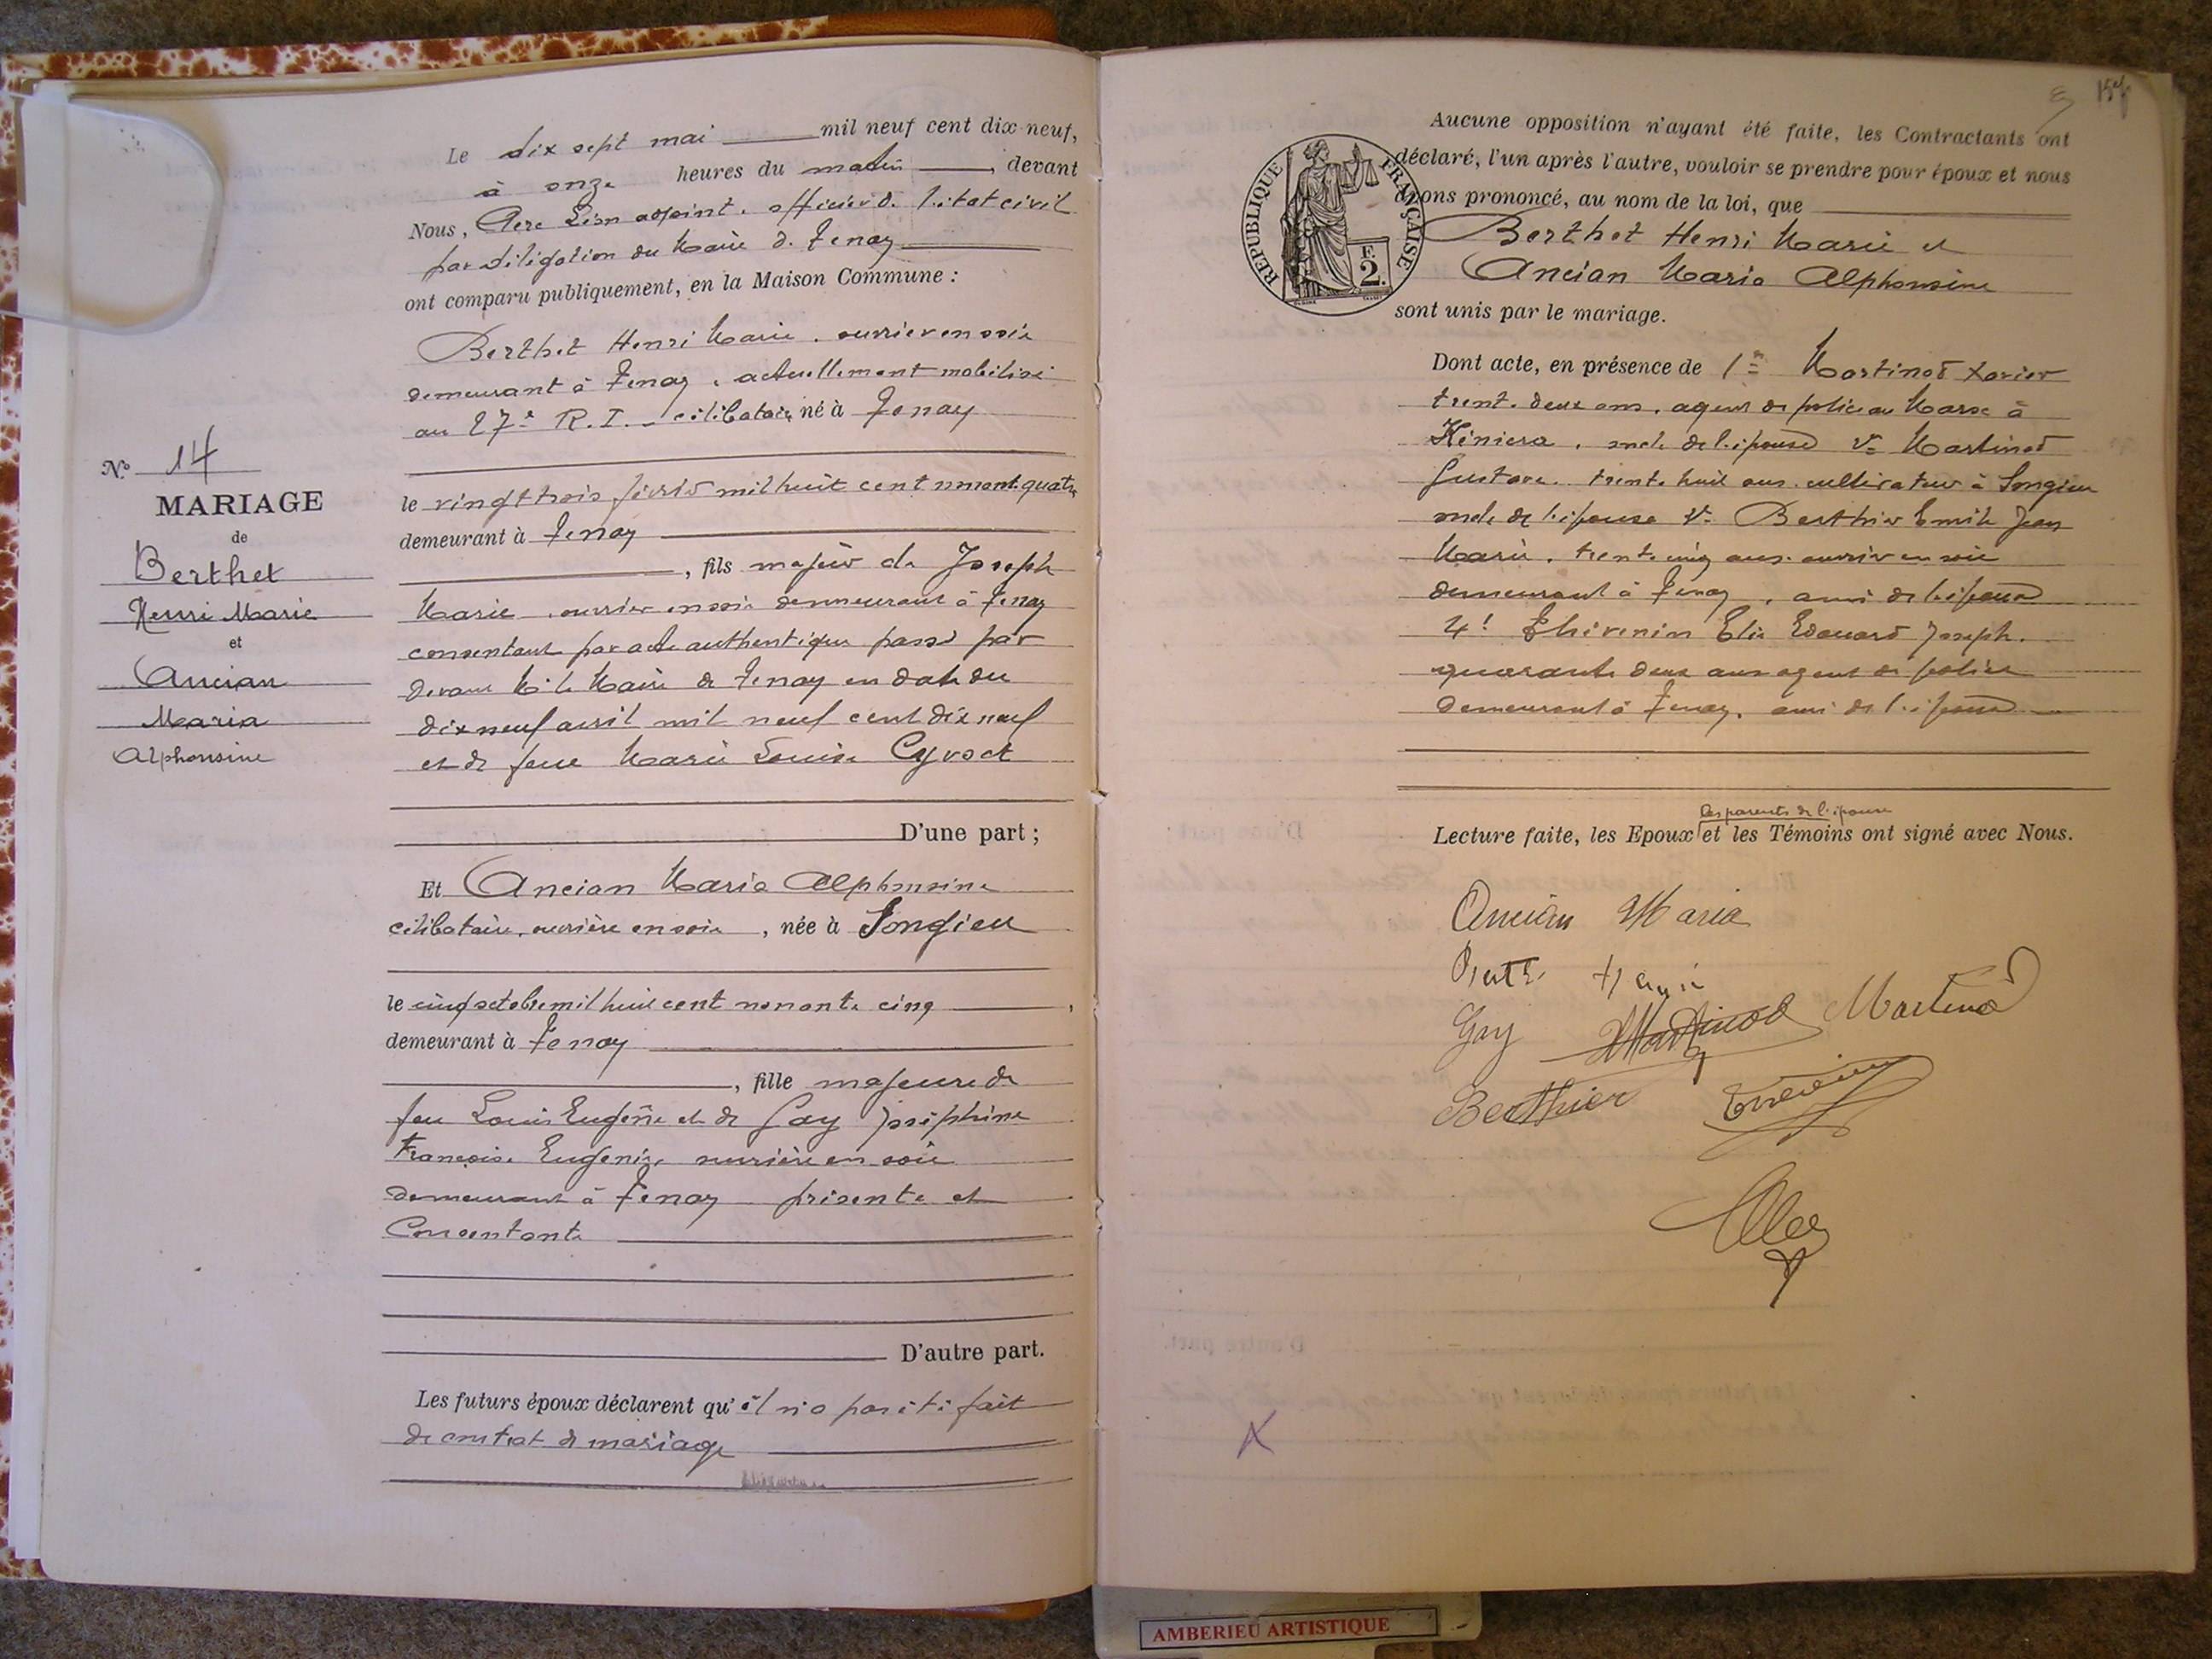 Le dix sept mai mil neuf cent dix-neuf,
à onze heures du matin, devant
Nous, Léon adjoint, officier de l'état civil
par délégation du Maire de Tenay
ont comparu publiquement, en la Maison Commune :
Berthet Henri Marie, ouvrier en soie
demeurant à Tenay, actuellement mobilisé
au 27e R.I. célibataire né à Tenay
le vingt trois février mil huit cent nonant quatre
demeurant à Tenay
, fils majeur de Joseph
Marie, ouvrier en soie demeurant à Tenay
consentant par acte authentique passé par
devant M. le Maire de Tenay en date du
dix neuf avril mil neuf cent dix neuf
et de feue Marie Louise Cyvoct
D'une part ;
Nº 14
MARIAGE
de
Berthet
Henri Marie
et
Ancian
Maria
Alphonsine
Et Ancian Maria Alphonsine
célibataire, ouvrière en soie, née à Songieu
le cinq octobre mil huit cent nonante cinq,
demeurant à Tenay
, fille majeure de
feu Louis Eugène et de Gay Joséphine
Françoise Eugénie, ouvrière en soie
demeurant à Tenay présente et
Consentante
D'autre part.
Les futurs époux déclarent qu'il n'a pas été fait
de contrat de mariage
Aucune opposition n'ayant été faite, les Contractants ont
déclaré, l'un après l'autre, vouloir se prendre pour époux et nous
avons prononcé, au nom de la loi, que
REPUBLIQUE FRANÇAISE
F. 2.
Berthet Henri Marie et
Ancian Maria Alphonsine
sont unis par le mariage.
Dont acte, en présence de 1º Martinod Xavier
trente deux ans, agent de police au Maroc à
Kénitra, oncle de l'épouse 2º Martinod
Gustave trente huit ans cultivateur à Songieu
oncle de l'épouse 3º Berthier Emile Jean
Marie, trente cinq ans ouvrier en soie
demeurant à Tenay, ami de l'époux
4º Thévenin Elie Edouard Joseph
quarante deux ans agent de police
demeurant à Tenay, ami de l'époux
les parents de l'épouse
Lecture faite, les Epoux et les Témoins ont signé avec Nous.
Ancian Maria
Henri
Gay Martinod Martinod
Berthier
AMBERIEU ARTISTIQUE